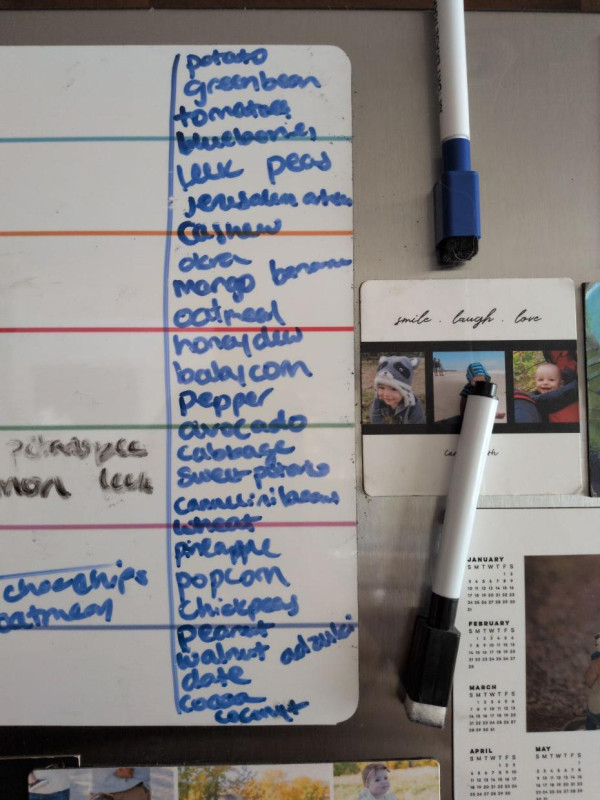 potato
greenbean
tomatoes
blueberries
leek peas
jerusalem
cashew
okra
mango banana
oatmeal
honeydew
babycorn
pepper
avocado
cabbage
sweet potato
cannellini beans
wheat
pineapple
popcorn
chickpeas
peanut
walnut adzuki
date
cocoa
coconut
leek
chips
oatmeal
smile . laugh . love
JANUARY
S M T W T F S
FEBRUARY
S M T W T F S
MARCH
S M T W T F S
APRIL
S M T W T F S
MAY
S M T W T F S